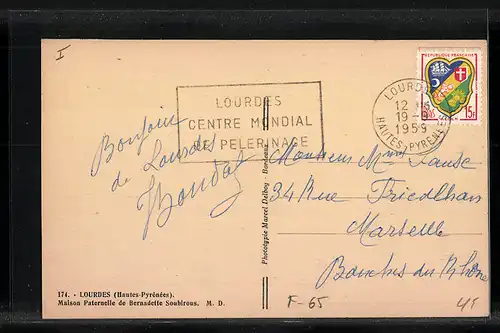 I
LOURDES
CENTRE MONDIAL
DE PELERINAGE
REPUBLIQUE FRANÇAISE
15F
LOURDES
12 H
19-
1959
HAUTES-PYRENEES
Bonjour
de Lourdes
Monsieur Mme
34 Rue Friedland
Marseille
Bouches du Rhône
Phototypie Marcel Delboy - Bordeaux
174. - LOURDES (Hautes-Pyrénées).
Maison Paternelle de Bernadette Soubirous. M. D.
F-65